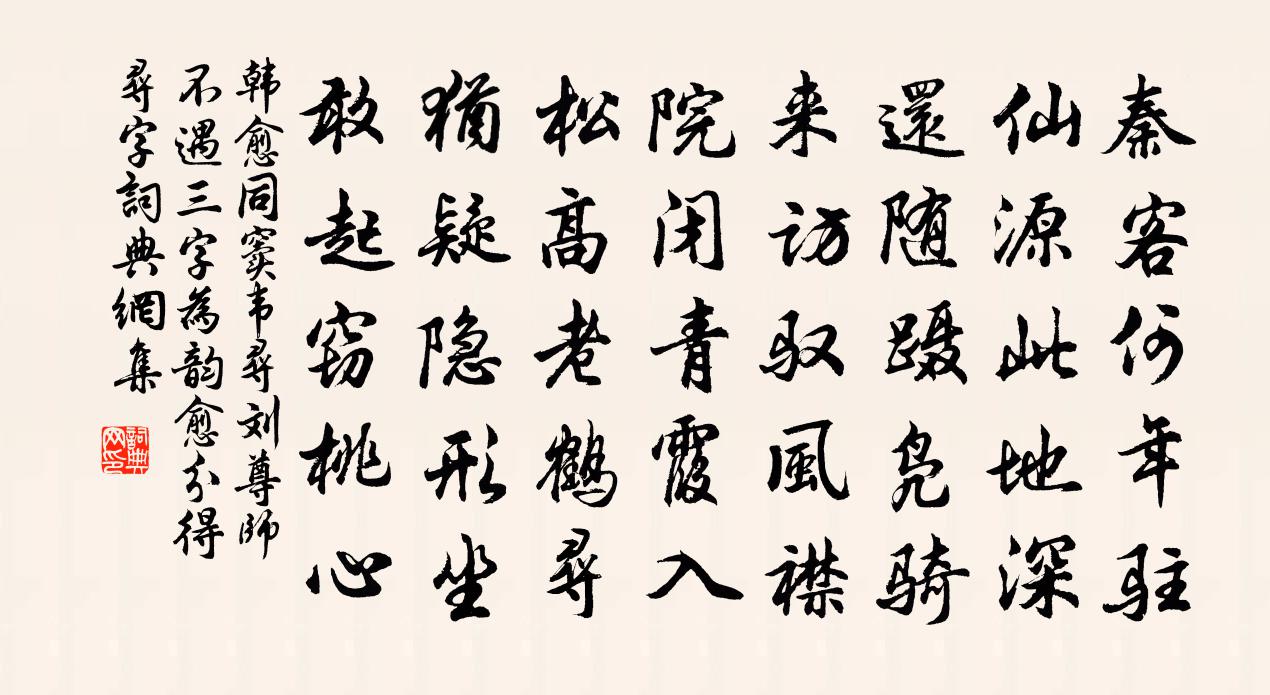 秦客何年驻
仙源此地深
還随蹑凫骑
来访驭風襟
院闭青霞入
松高老鹤尋
猶疑隐形坐
敢起窃桃心
韩愈同窦韦尋刘尊師
不遇三字為韵愈分得
尋字詞典網集
詞典
网印